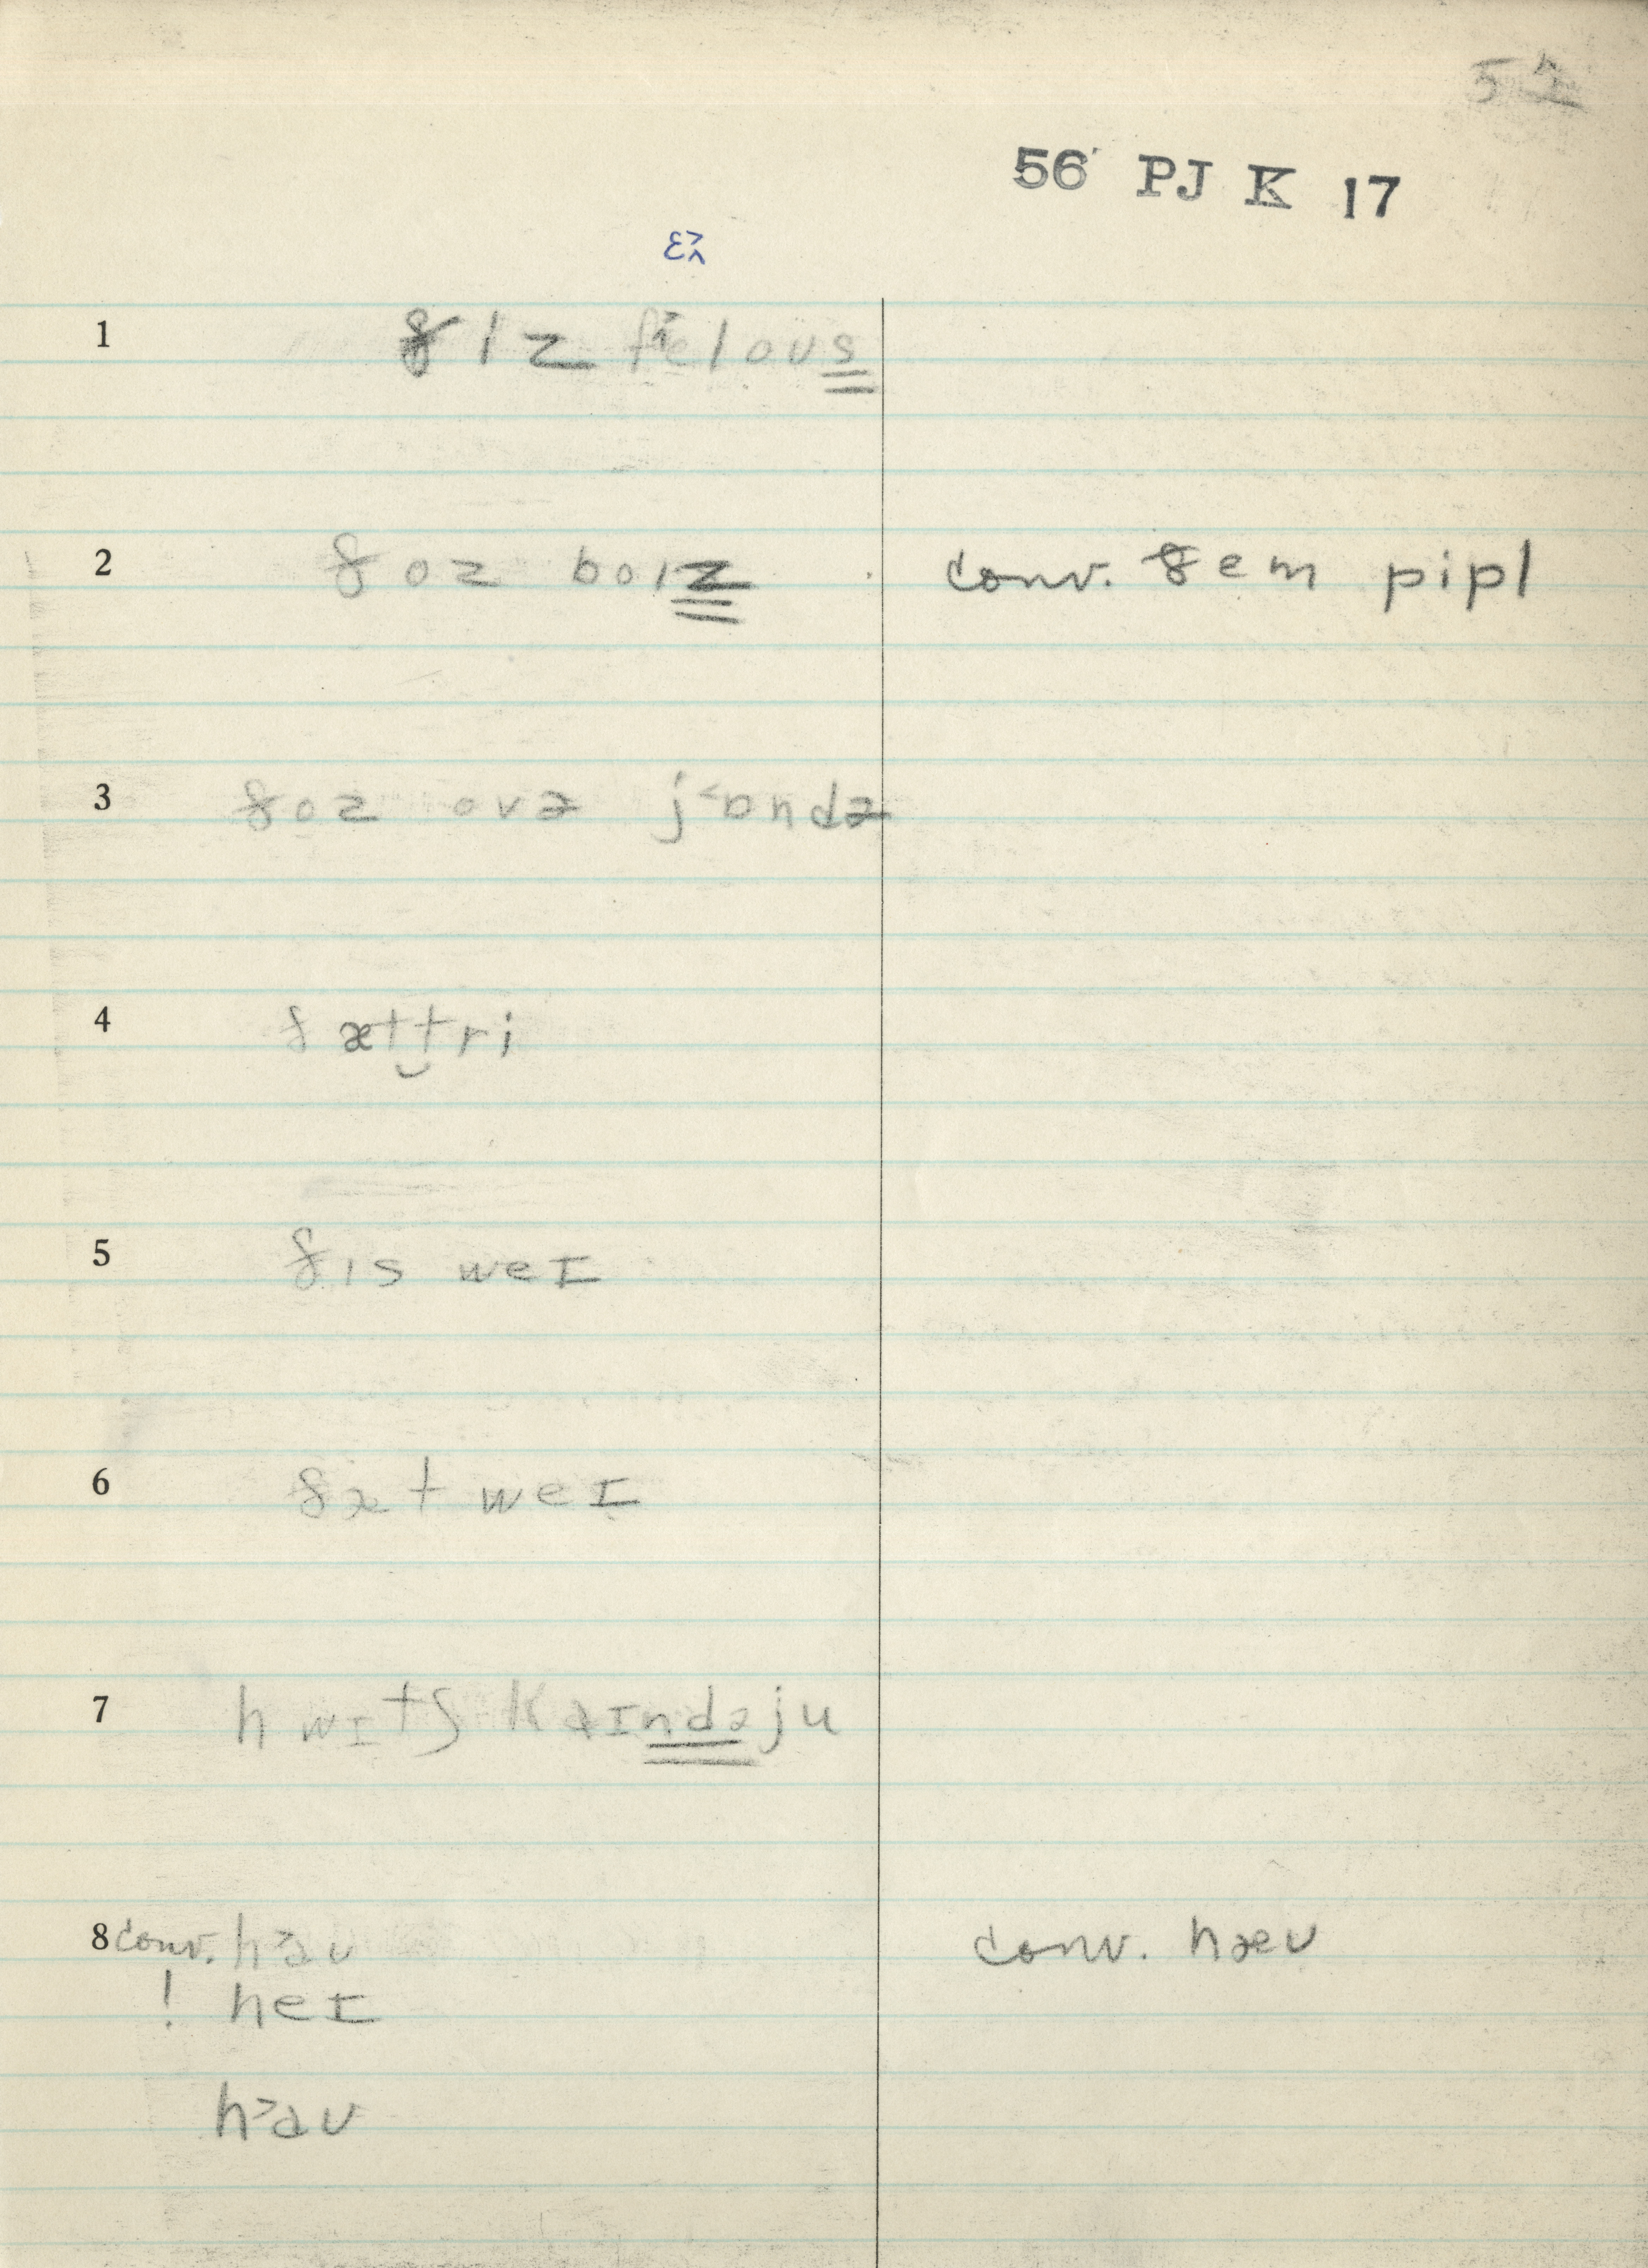 56 PJ K 17
1 ðɪz felous
2 ðoz boɪz conv. ðem pipl
3 ðoz ovɚ jɒndɚ
4 ðæt tri
5 ðɪs weɪ
6 ðæt weɪ
7 hwɪtʃ kaɪndəju
8 conv. haʊ conv. hæʊ
! heɪ
haʊ